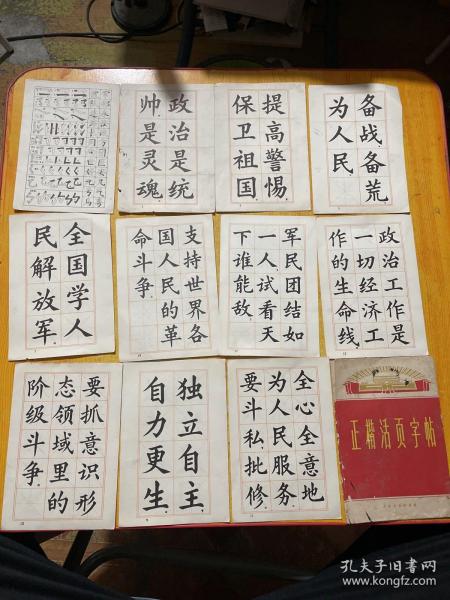 政治是统
帅是灵魂
提高警惕
保卫祖国
备战备荒
为人民
全国学人
民解放军
支持世界各
国人民的革
命斗争
军民团结如
一人试看天
下谁能敌
政治工作是
一切经济工
作的生命线
要抓意识形
态领域里的
阶级斗争
独立自主
自力更生
全心全意地
为人民服务
要斗私批修
正楷活页字帖
孔夫子旧书网
www.kongfz.com